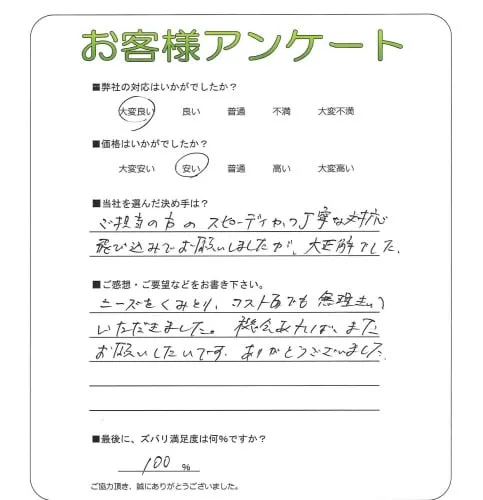 お客様アンケート
■弊社の対応はいかがでしたか?
大変良い 良い 普通 不満 大変不満
■価格はいかがでしたか?
大変安い 安い 普通 高い 大変高い
■当社を選んだ決め手は?
ご担当の方のスピーディかつ丁寧な対応
飛び込みでお願いしましたが、大正解でした。
■ご感想・ご要望などをお書き下さい。
ニーズをくみとり、コスト面でも無理
いただきました。機会あれば、また
お願いしたいです。ありがとうございました。
■最後に、ズバリ満足度は何%ですか?
100 %
ご協力頂き、誠にありがとうございました。